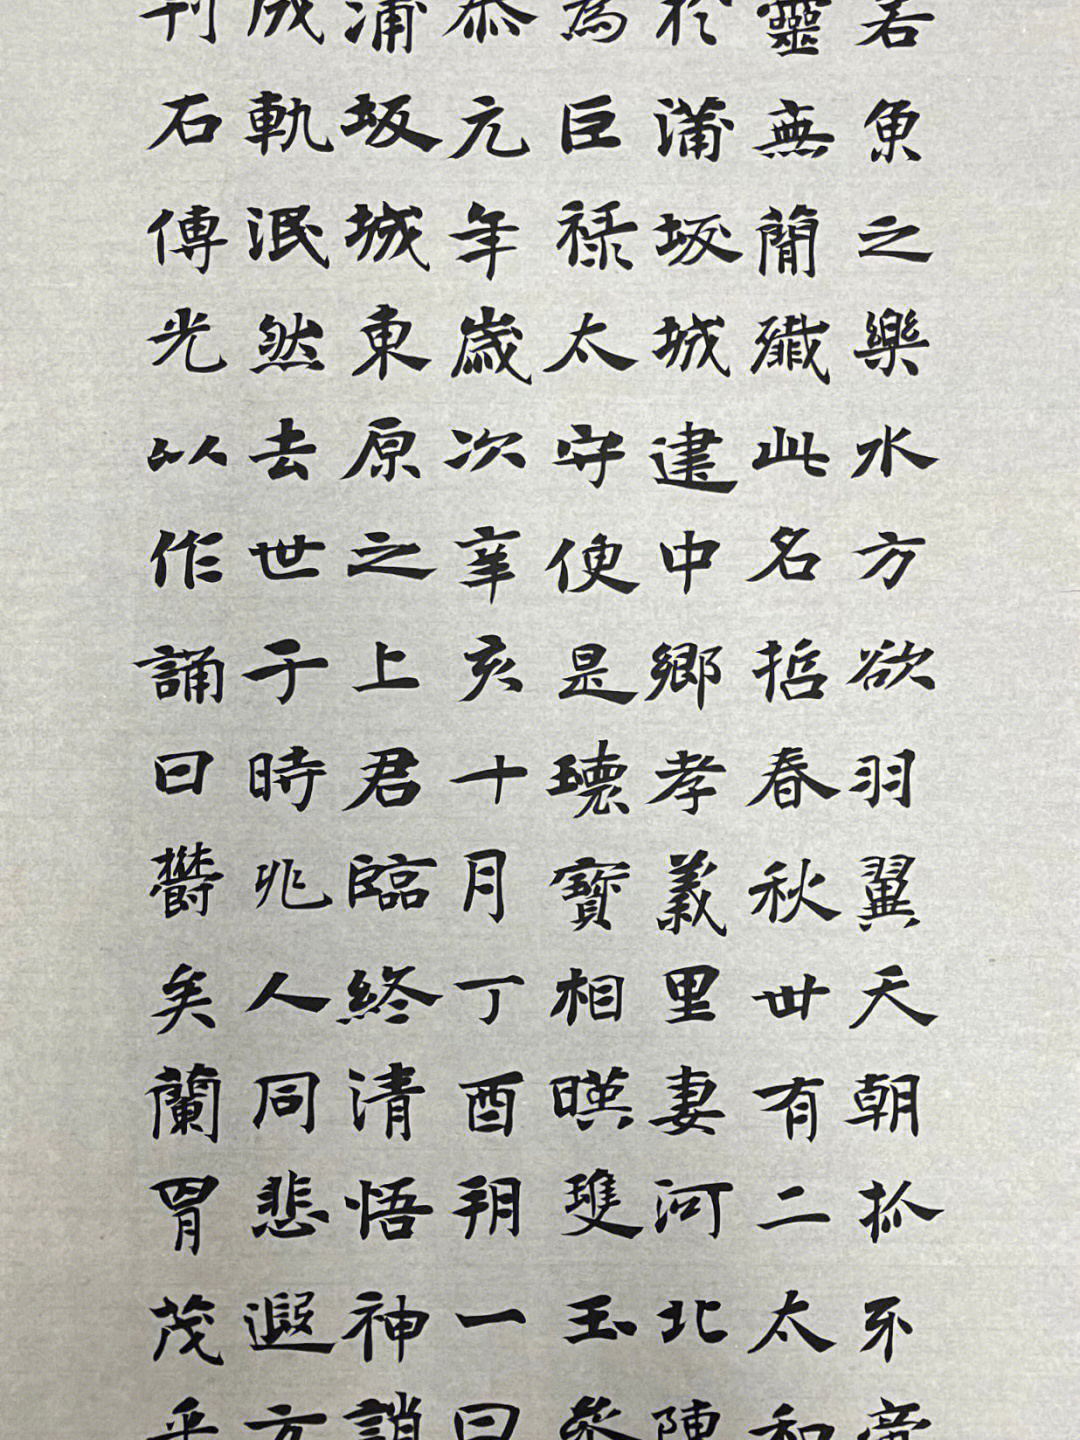 若魚之樂水方欲羽翼天朝抓牙帝
靈無簡殲此名哲春秋卅有二太和
於蒲坂城建中鄉孝義里妻河北陳
為巨祿太守使是瓌寶相暎雙玉參
恭元年歲次辛亥十月丁酉朔一日
蒲坂城東原之上君臨終清悟神誚
成軌泯然去世于時兆人同悲遐方
刊石傳光以作誦曰鬱矣蘭胄茂乎